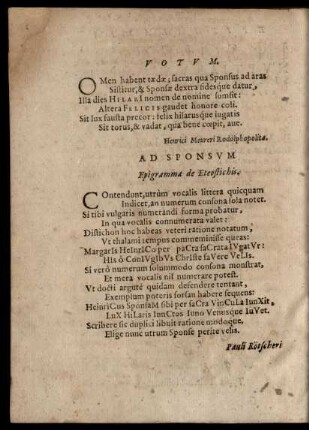 VOTVM.
OMen habent tædæ; sacras qua Sponsus ad aras
Sistitur, & Sponsæ dextra fidesque datur,
Illa dies HILARI nomen de nomine sumsit:
Altera FELICIS gaudet honore coli.
Sit lux fausta precor: felix hilarusque iugatis
Sit torus, & vadat, qua bene cœpit, ave.
Henrici Meieri Rodolphopolitæ.
AD SPONSVM
Epigramma de Eteostichis.
COntendunt, utrùm vocalis littera quicquam
Indicet, an numerum consona sola notet.
Si tibi vulgatis numerandi forma probatur,
In qua vocalis connumerata valet:
Distichon hoc habeas veteri ratione notatum,
Vt thalami tempus commeminisse queas:
MargarIs HeInrICo per paCta saCrata IVgatVr:
HIs ô ConIVgIbVs ChrIste faVere VeLIs.
Si verò numerum solummodo consona monstrat,
Et mera vocalis nil numerare potest.
Vt docti argutè quidam defendere tentant,
Exemplum poteris forsan habere sequens:
HeinriCus SponsaM sibi per saCra VinCuLa IunXit,
LuX HiLaris IunCtos Iuno Venusque IuVet.
Scribere sic duplici libuit ratione modoque.
Elige nunc utrum Sponse perite velis.
Pauli Rötscheri